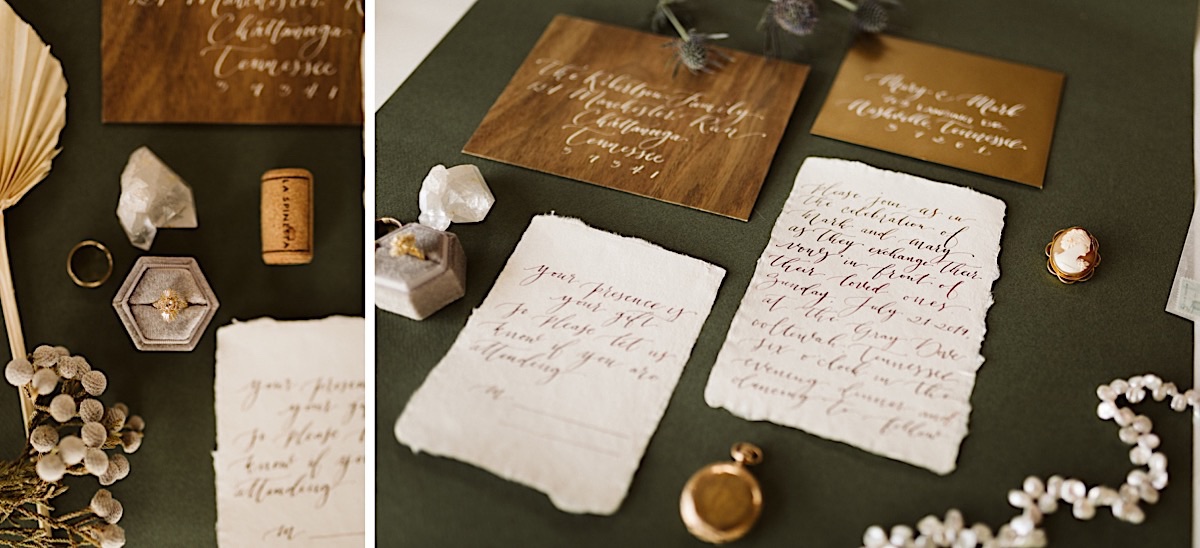 Manchester R
Chattanooga
Tennessee
3 7 3 4 1
LA SPINETTA
your presen
your
so Please
know if yo
attending
M
The Robertson Family
124 Manchester Run
Chattanooga
Tennessee
3 7 3 4 1
Mary & Mark
Nashville, Tennessee
3 7 2 0 1
your presence is
your gift
so Please let us
know if you are
attending
M
Please join us in
the celebration of
Mark and Mary
as they exchange their
vows in front of
their loved ones
Sunday, July 21 2019,
at the Gray Dove
ooltewah, Tennessee
six o clock in the
evening dinner and
dancing to
follow